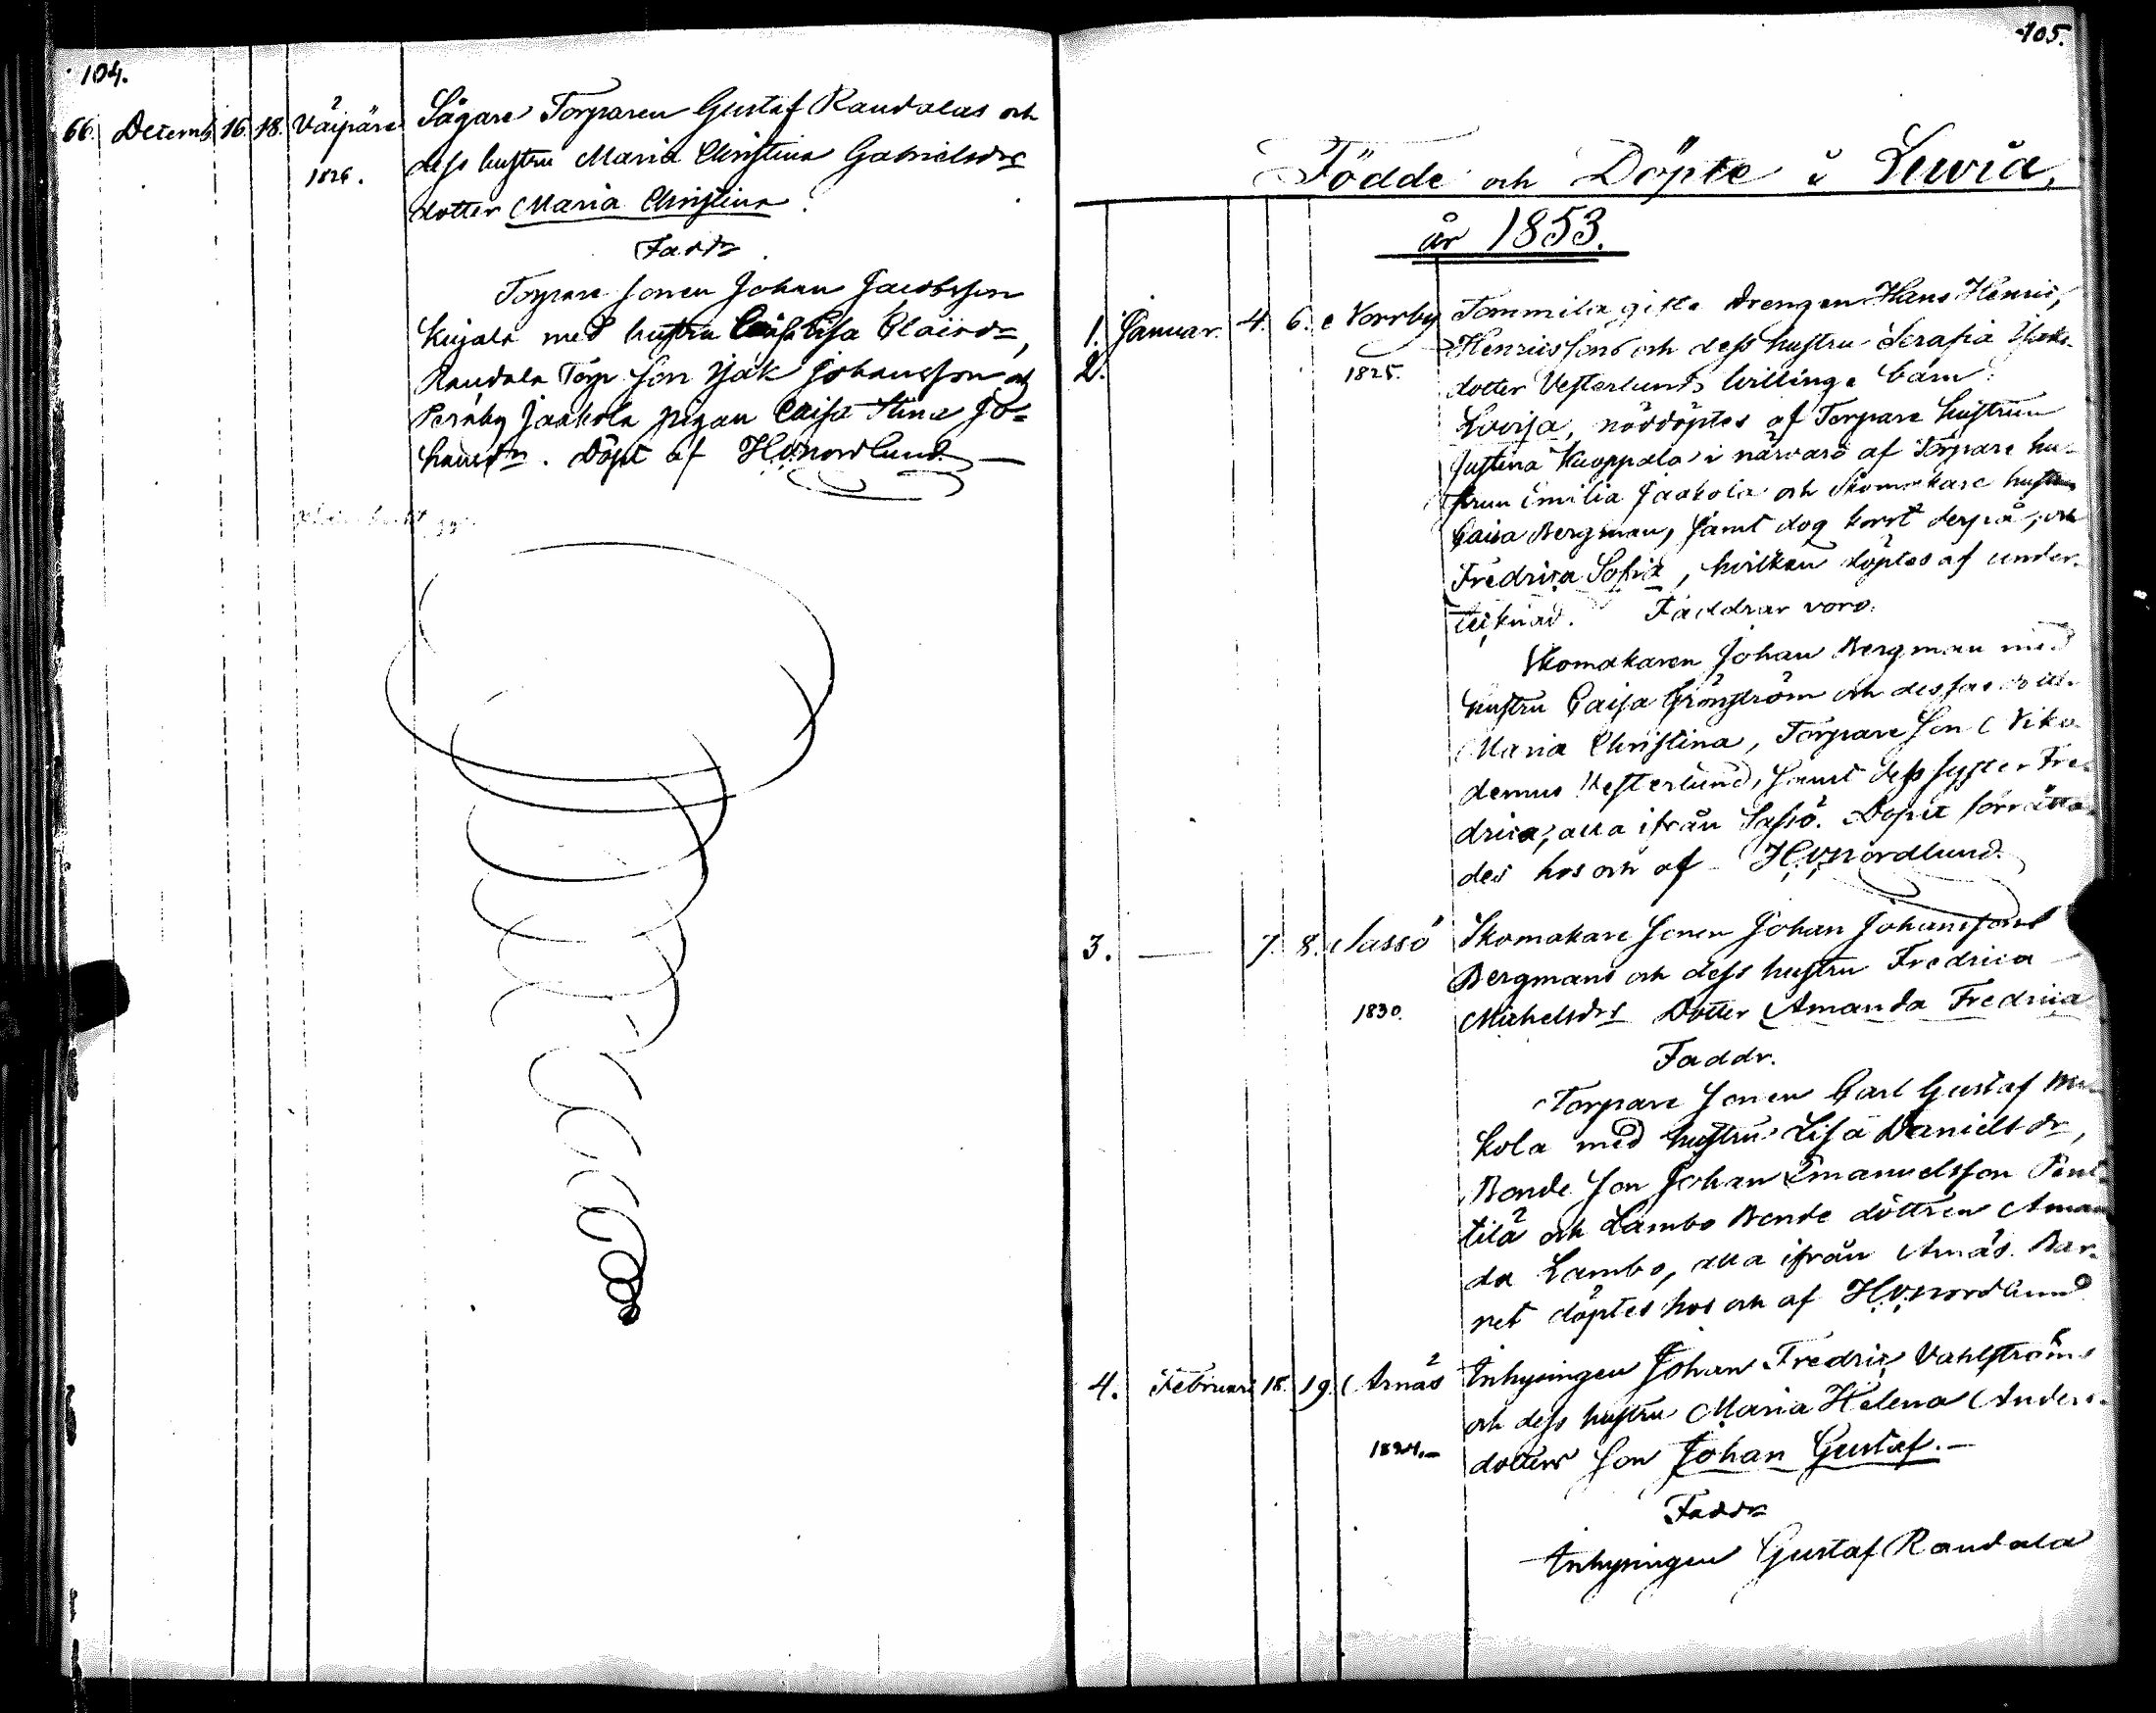 104.
66. Decemb. 16. 18. Våipäre Sågare Torparen Gustaf Raudalas och
1826. dess hustru Maria Christina Gabrielsdrs
dotter Maria Christina.
Faddr
Torpare sonen Johan Jacobsson
Kujala med hustru Lisa Claisdr,
Raudala Torp son Isak Johansson och
Pernby Jaakola pigan Caisa Stina Jo=
hansdr. Döpt af HWnordlund.
105.
Födde och Döpte i Luvia,
år 1853.
1. Januar. 4. 6. Norrby Tommila gifte Drengen Hans Henric
2. 1825. Henricssons och dess hustru Serafia
dotter Vesterlunds tvillinge barn:
Lovisa, nöddöptes af Torpare hustrun
Justina Kuoppala i närvaro af Torpare hu=
strun Emilia Jaakola och Skomakare hustrun
Caisa Bergman, samt dog kort derpå, och
Fredrica Sofia, hvilken döptes af under=
teknad. Faddrar voro:
Skomakaren Johan Bergman med
hustru Caisa Grönström och dessas dotter
Maria Christina, Torpare son Niko=
demus Vesterlund, samt dess syster Fre=
drica, alla ifrån Lassö. Dopet förrätta=
des hos och af HWnordlund.
3. — 7. 8. Sassö Skomakare sonen Johan Johanssons
Bergmans och dess hustru Fredrica
1830. Michelsdrs Dotter Amanda Fredrica
Faddr.
Torpare sonen Carl Gustaf
kola med hustru Lisa Danielsdr,
Bonde son Johan Emanuelsson Pent=
tilä och Lambo Bonde dottren Aman
da Lambo, alla ifrån Anäs. Bar=
net döptes hos och af HWnordlund
4. Februari 18. 19. Arnäs Inhysingen Johan Fredric Vahlströms
och dess hustru Maria Helena Anders=
1824.— dotters son Johan Gustaf.—
Faddr
Inhysingen Gustaf Raudala